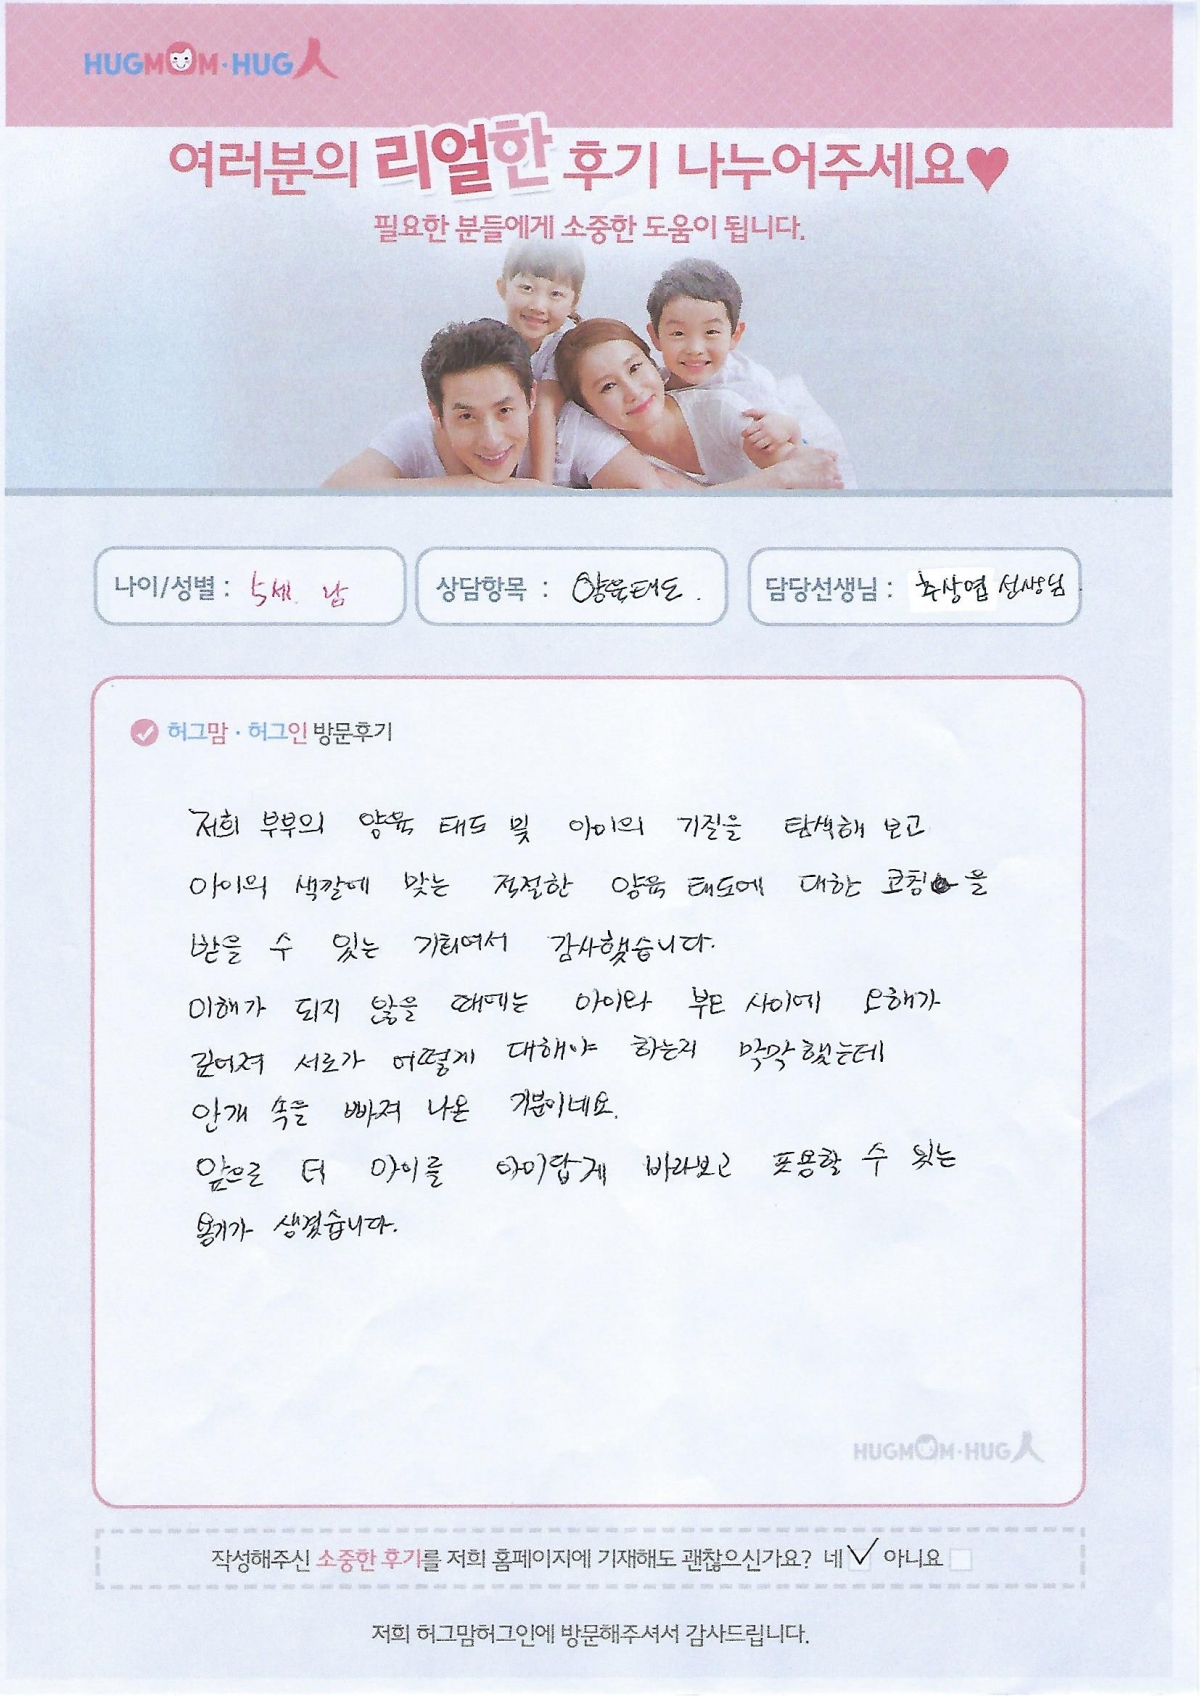 HUGMOM·HUG人
여러분의 리얼한 후기 나누어주세요♥
필요한 분들에게 소중한 도움이 됩니다.
나이/성별 : 5세. 남
상담항목 : 양육태도.
담당선생님 : 추상엽 선생님.
허그맘·허그인 방문후기
저희 부부의 양육 태도 및 아이의 기질을 탐색해 보고
아이의 색깔에 맞는 적절한 양육 태도에 대한 코칭을
받을 수 있는 기회여서 감사했습니다.
이해가 되지 않을 때에는 아이와 부모 사이에 오해가
깊어져 서로가 어떻게 대해야 하는지 막막했는데
안개 속을 빠져 나온 기분이네요.
앞으로 더 아이를 아이답게 바라보고 포용할 수 있는
용기가 생겼습니다.
HUGMOM·HUG人
작성해주신 소중한 후기를 저희 홈페이지에 기재해도 괜찮으신가요? 네 ✓ 아니요
저희 허그맘허그인에 방문해주셔서 감사드립니다.